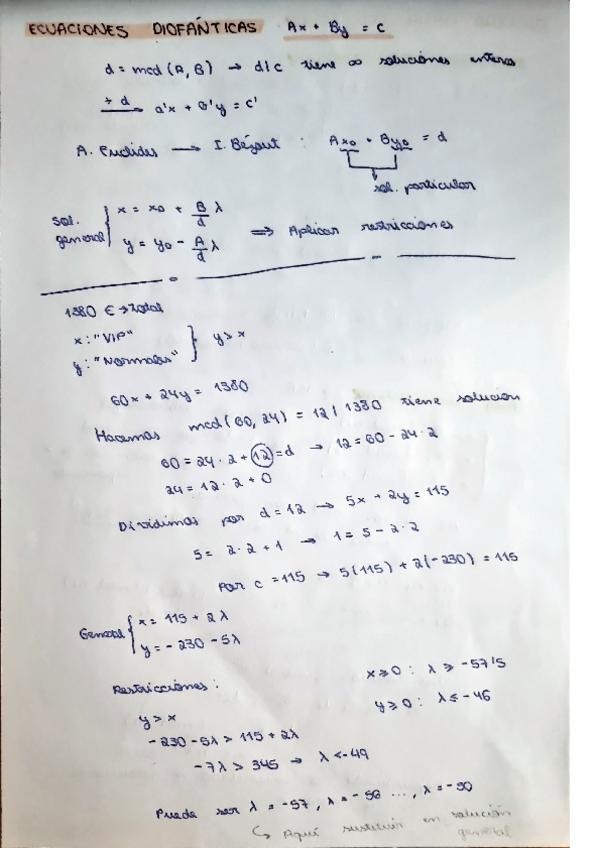 ECUACIONES DIOFÁNTICAS Ax + By = c
d = mcd (A, B) → d|c tiene ∞ soluciones enteras
÷ d → a'x + b'y = c'
A. Euclides → I. Bézout : Ax₀ + By₀ = d
sol. particular
sol. general { x = x₀ + B/d λ
y = y₀ - A/d λ ⇒ Aplicar restricciones
1380 € → total
x : "VIP"
y : "Normales" } y > x
60x + 24y = 1380
Hacemos mcd (60, 24) = 12 | 1380 tiene solución
60 = 24 · 2 + 12 = d → 12 = 60 - 24 · 2
24 = 12 · 2 + 0
Dividimos por d = 12 → 5x + 2y = 115
5 = 2 · 2 + 1 → 1 = 5 - 2 · 2
Por c = 115 → 5(115) + 2(-230) = 115
General { x = 115 + 2λ
y = -230 - 5λ
Restricciones :
x ≥ 0 : λ ≥ -57'5
y ≥ 0 : λ ≤ -46
y > x
-230 - 5λ > 115 + 2λ
-7λ > 345 → λ < -49
Puede ser λ = -57, λ = -56 ..., λ = -50
↳ Aquí sustituir en solución general